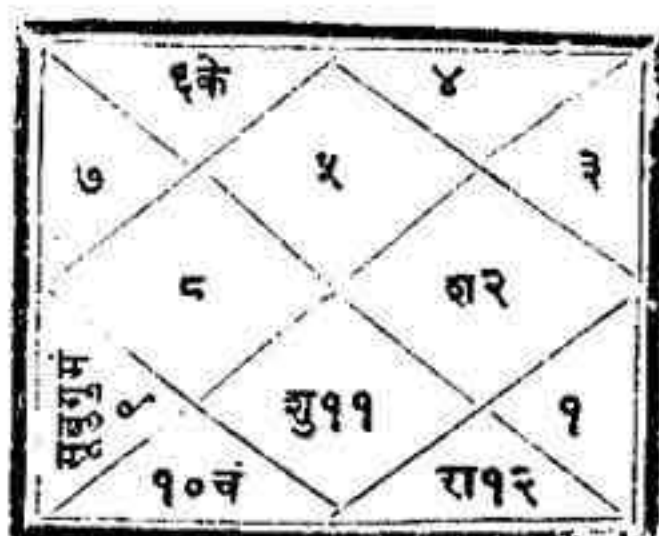 ६के ४
७ ५ ३
८ श२
सूबुगुम
९ शु११ १
१०चं रा१२